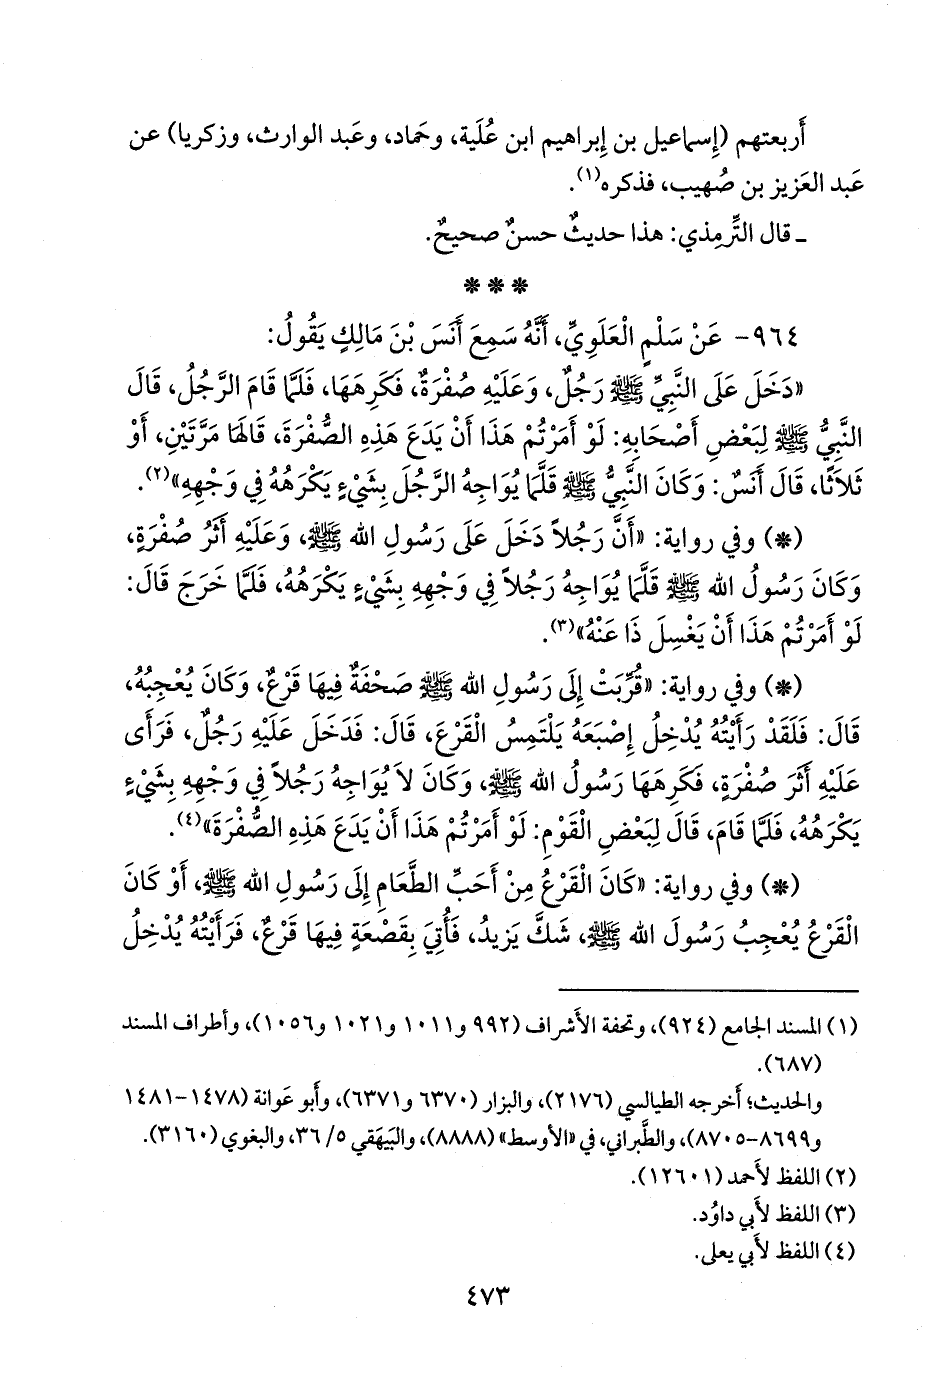 أَربعتهم (إِسماعيل بن إِبراهيم ابن عُلَية، وحَماد، وعَبد الوارث، وزكريا) عن
عَبد العَزيز بن صُهيب، فذكره(١).
ـ قال التِّرمِذي: هذا حديثٌ حسنٌ صحيحٌ.
* * *
٩٦٤- عَنْ سَلْمٍ الْعَلَوِيِّ، أَنَّهُ سَمِعَ أَنَسَ بْنَ مَالِكٍ يَقُولُ:
«دَخَلَ عَلَى النَّبِيِّ ﷺ رَجُلٌ، وَعَلَيْهِ صُفْرَةٌ، فَكَرِهَهَا، فَلَمَّا قَامَ الرَّجُلُ، قَالَ
النَّبِيُّ ﷺ لِبَعْضِ أَصْحَابِهِ: لَوْ أَمَرْتُمْ هَذَا أَنْ يَدَعَ هَذِهِ الصُّفْرَةَ، قَالَهَا مَرَّتَيْنِ، أَوْ
ثَلاَثًا، قَالَ أَنَسٌ: وَكَانَ النَّبِيُّ ﷺ قَلَّمَا يُوَاجِهُ الرَّجُلَ بِشَيْءٍ يَكْرَهُهُ فِي وَجْهِهِ»(٢).
(*) وفي رواية: «أَنَّ رَجُلاً دَخَلَ عَلَى رَسُولِ الله ﷺ، وَعَلَيْهِ أَثَرُ صُفْرَةٍ،
وَكَانَ رَسُولُ الله ﷺ قَلَّمَا يُوَاجِهُ رَجُلاً فِي وَجْهِهِ بِشَيْءٍ يَكْرَهُهُ، فَلَمَّا خَرَجَ قَالَ:
لَوْ أَمَرْتُمْ هَذَا أَنْ يَغْسِلَ ذَا عَنْهُ»(٣).
(*) وفي رواية: «قُرِّبَتْ إِلَى رَسُولِ الله ﷺ صَحْفَةٌ فِيهَا قَرْعٌ، وَكَانَ يُعْجِبُهُ،
قَالَ: فَلَقَدْ رَأَيْتُهُ يُدْخِلُ إِصْبَعَهُ يَلْتَمِسُ الْقَرْعَ، قَالَ: فَدَخَلَ عَلَيْهِ رَجُلٌ، فَرَأَى
عَلَيْهِ أَثَرَ صُفْرَةٍ، فَكَرِهَهَا رَسُولُ الله ﷺ، وَكَانَ لاَ يُوَاجِهُ رَجُلاً فِي وَجْهِهِ بِشَيْءٍ
يَكْرَهُهُ، فَلَمَّا قَامَ، قَالَ لِبَعْضِ الْقَوْمِ: لَوْ أَمَرْتُمْ هَذَا أَنْ يَدَعَ هَذِهِ الصُّفْرَةَ»(٤).
(*) وفي رواية: «كَانَ الْقَرْعُ مِنْ أَحَبِّ الطَّعَامِ إِلَى رَسُولِ الله ﷺ، أَوْ كَانَ
الْقَرْعُ يُعْجِبُ رَسُولَ الله ﷺ، شَكَّ يَزِيدُ، فَأُتِيَ بِقَصْعَةٍ فِيهَا قَرْعٌ، فَرَأَيْتُهُ يُدْخِلُ
(١) المسند الجامع (٩٢٤)، وتحفة الأَشراف (٩٩٢ و١٠١١ و١٠٢١ و١٠٥٦)، وأطراف المسند
(٦٨٧).
والحديث؛ أَخرجه الطيالسي (٢١٧٦)، والبزار (٦٣٧٠ و٦٣٧١)، وأَبو عَوانة (١٤٧٨-١٤٨١
و٨٦٩٩-٨٧٠٥)، والطَّبراني، في «الأوسط» (٨٨٨٨)، والبَيهَقي ٥/ ٣٦، والبغوي (٣١٦٠).
(٢) اللفظ لأَحمد (١٢٦٠١).
(٣) اللفظ لأَبي داوُد.
(٤) اللفظ لأَبي يعلى.
٤٧٣